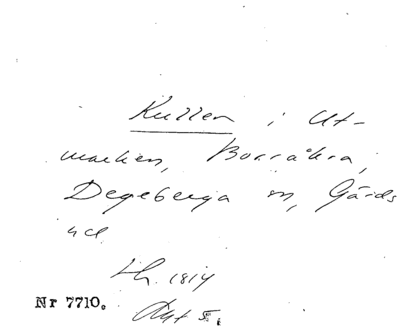 Kullen i Ut-
marken, Borråkra,
Degeberga sn, Gärds
hd.
Lh. 1814
Nr 7710.
Akt 5.